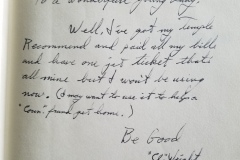 To a wonderful young lady.
Well, I've got my temple
Recommend and paid all my bills
and have one jet ticket that's
all mine but I won't be using
now. (I may want to use it to help a
"Conn." friend get home.)
Be Good
Wright